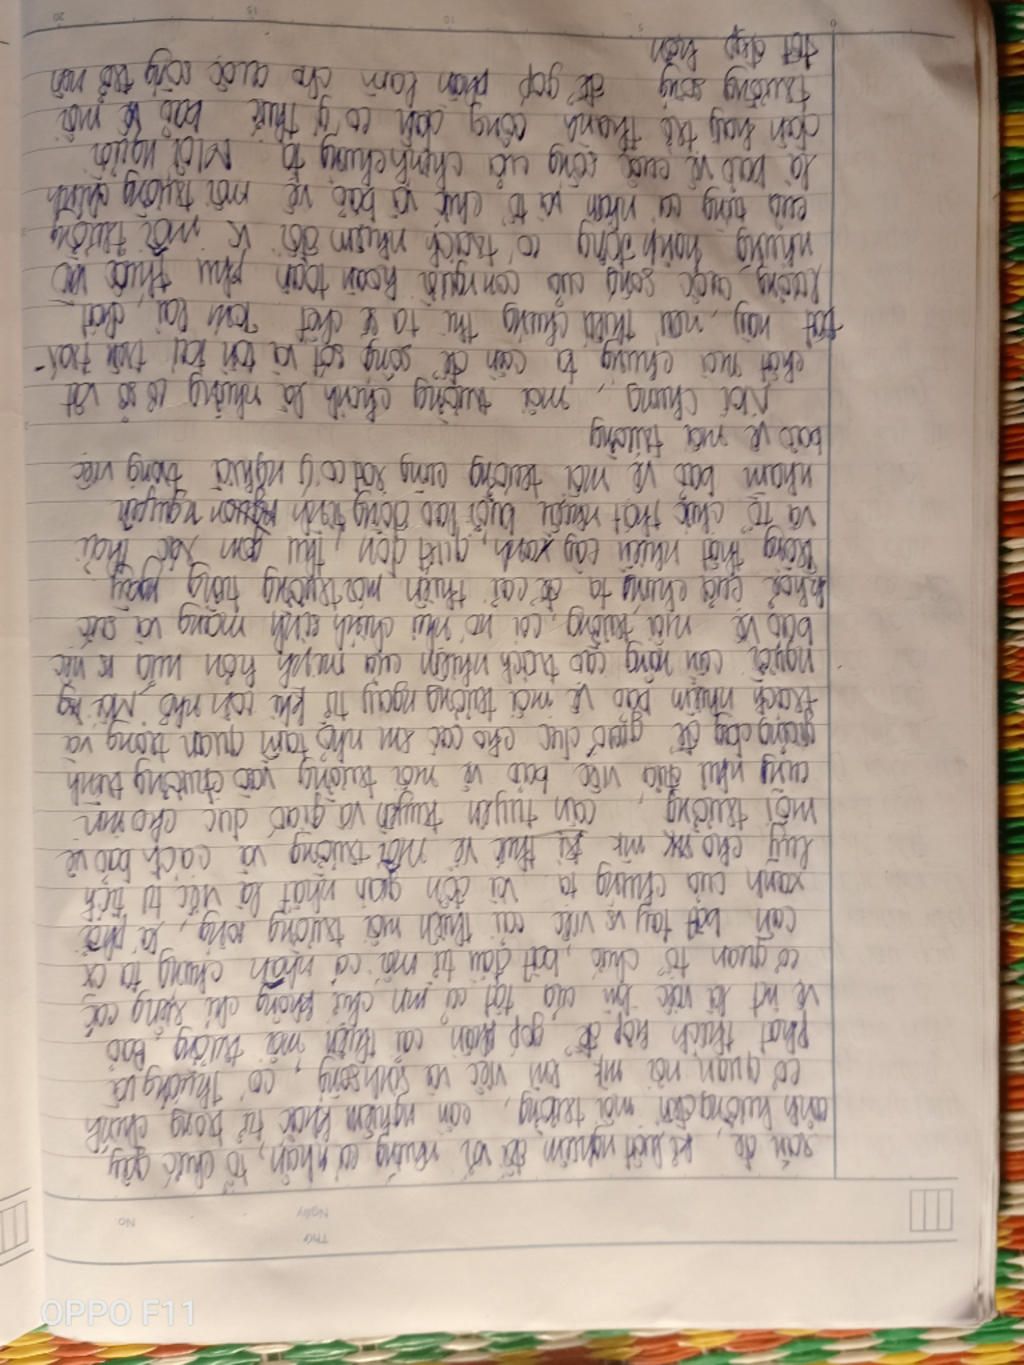 Thứ
Ngày
No.
răn đe, kỉ luật nghiêm đối với những cá nhân, tổ chức gây
ảnh hưởng đến môi trường, cần nghiêm khắc từ trong chính
cơ quan nơi mk lm việc và sinh sống, có thưởng và
phạt thích hợp để góp phần cải thiện môi trường, Bảo
vệ mt là việc lm của tất cả mn chứ không chỉ riêng các
cơ quan tổ chức, bắt đầu từ mỗi cá nhân chúng ta cx
cần bắt tay vs việc cải thiện môi trường sống, lá phổi
xanh của chúng ta và đơn giản nhất là việc tự tích
luỹ cho mk tri thức về môi trường và cách bảo vệ
môi trường, cần tuyên truyền và giáo dục cho mn
cũng như đưa việc bảo vệ môi trường vào chương trình
giảng dạy để giáo dục cho các em nhỏ tầm quan trọng và
trách nhiệm bảo vệ môi trường ngay từ khi còn nhỏ, Mỗi ng
người cần nâng cao trách nhiệm của mình hơn nữa vs việc
bảo vệ môi trường, coi nó như chính sinh mạng và sức
khoẻ của chúng ta để cải thiện môi trường, trồng ngay
trồng thật nhiều cây xanh, quét dọn, thu gom xác thải
và tổ chức thật nhiều buổi lao động tình nguyện
nhằm bảo vệ môi trường cũng rất có ý nghĩa trong việc
bảo vệ môi trường
Nói chung, môi trường chính là những cơ sở vật
chất mà chúng ta cần để sống sót và tồn tại trên trái
đất này, nếu thiếu chúng thì ta sẽ chết. Tồn tại, chất
lượng cuộc sống của con người hoàn toàn phụ thuộc vào
những hành động có trách nhiệm đối vs môi trường
của từng cá nhân và tổ chức và bảo vệ môi trường chính
là bảo vệ cuộc sống của chính chúng ta. Mỗi người
dân hãy trở thành công dân có ý thức bảo vệ môi
trường sống để góp phần làm cho cuộc sống trở nên
tốt đẹp hơn
0 5 10 15 20
OPPO F11